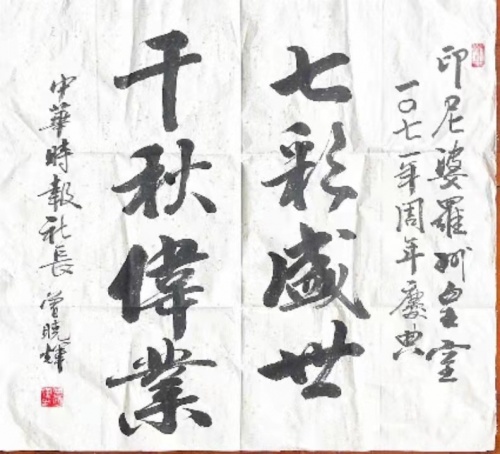 印尼婆羅洲皇室
一〇七一年周年慶典
七彩盛世
千秋偉業
中華時報社長 曾曉輝